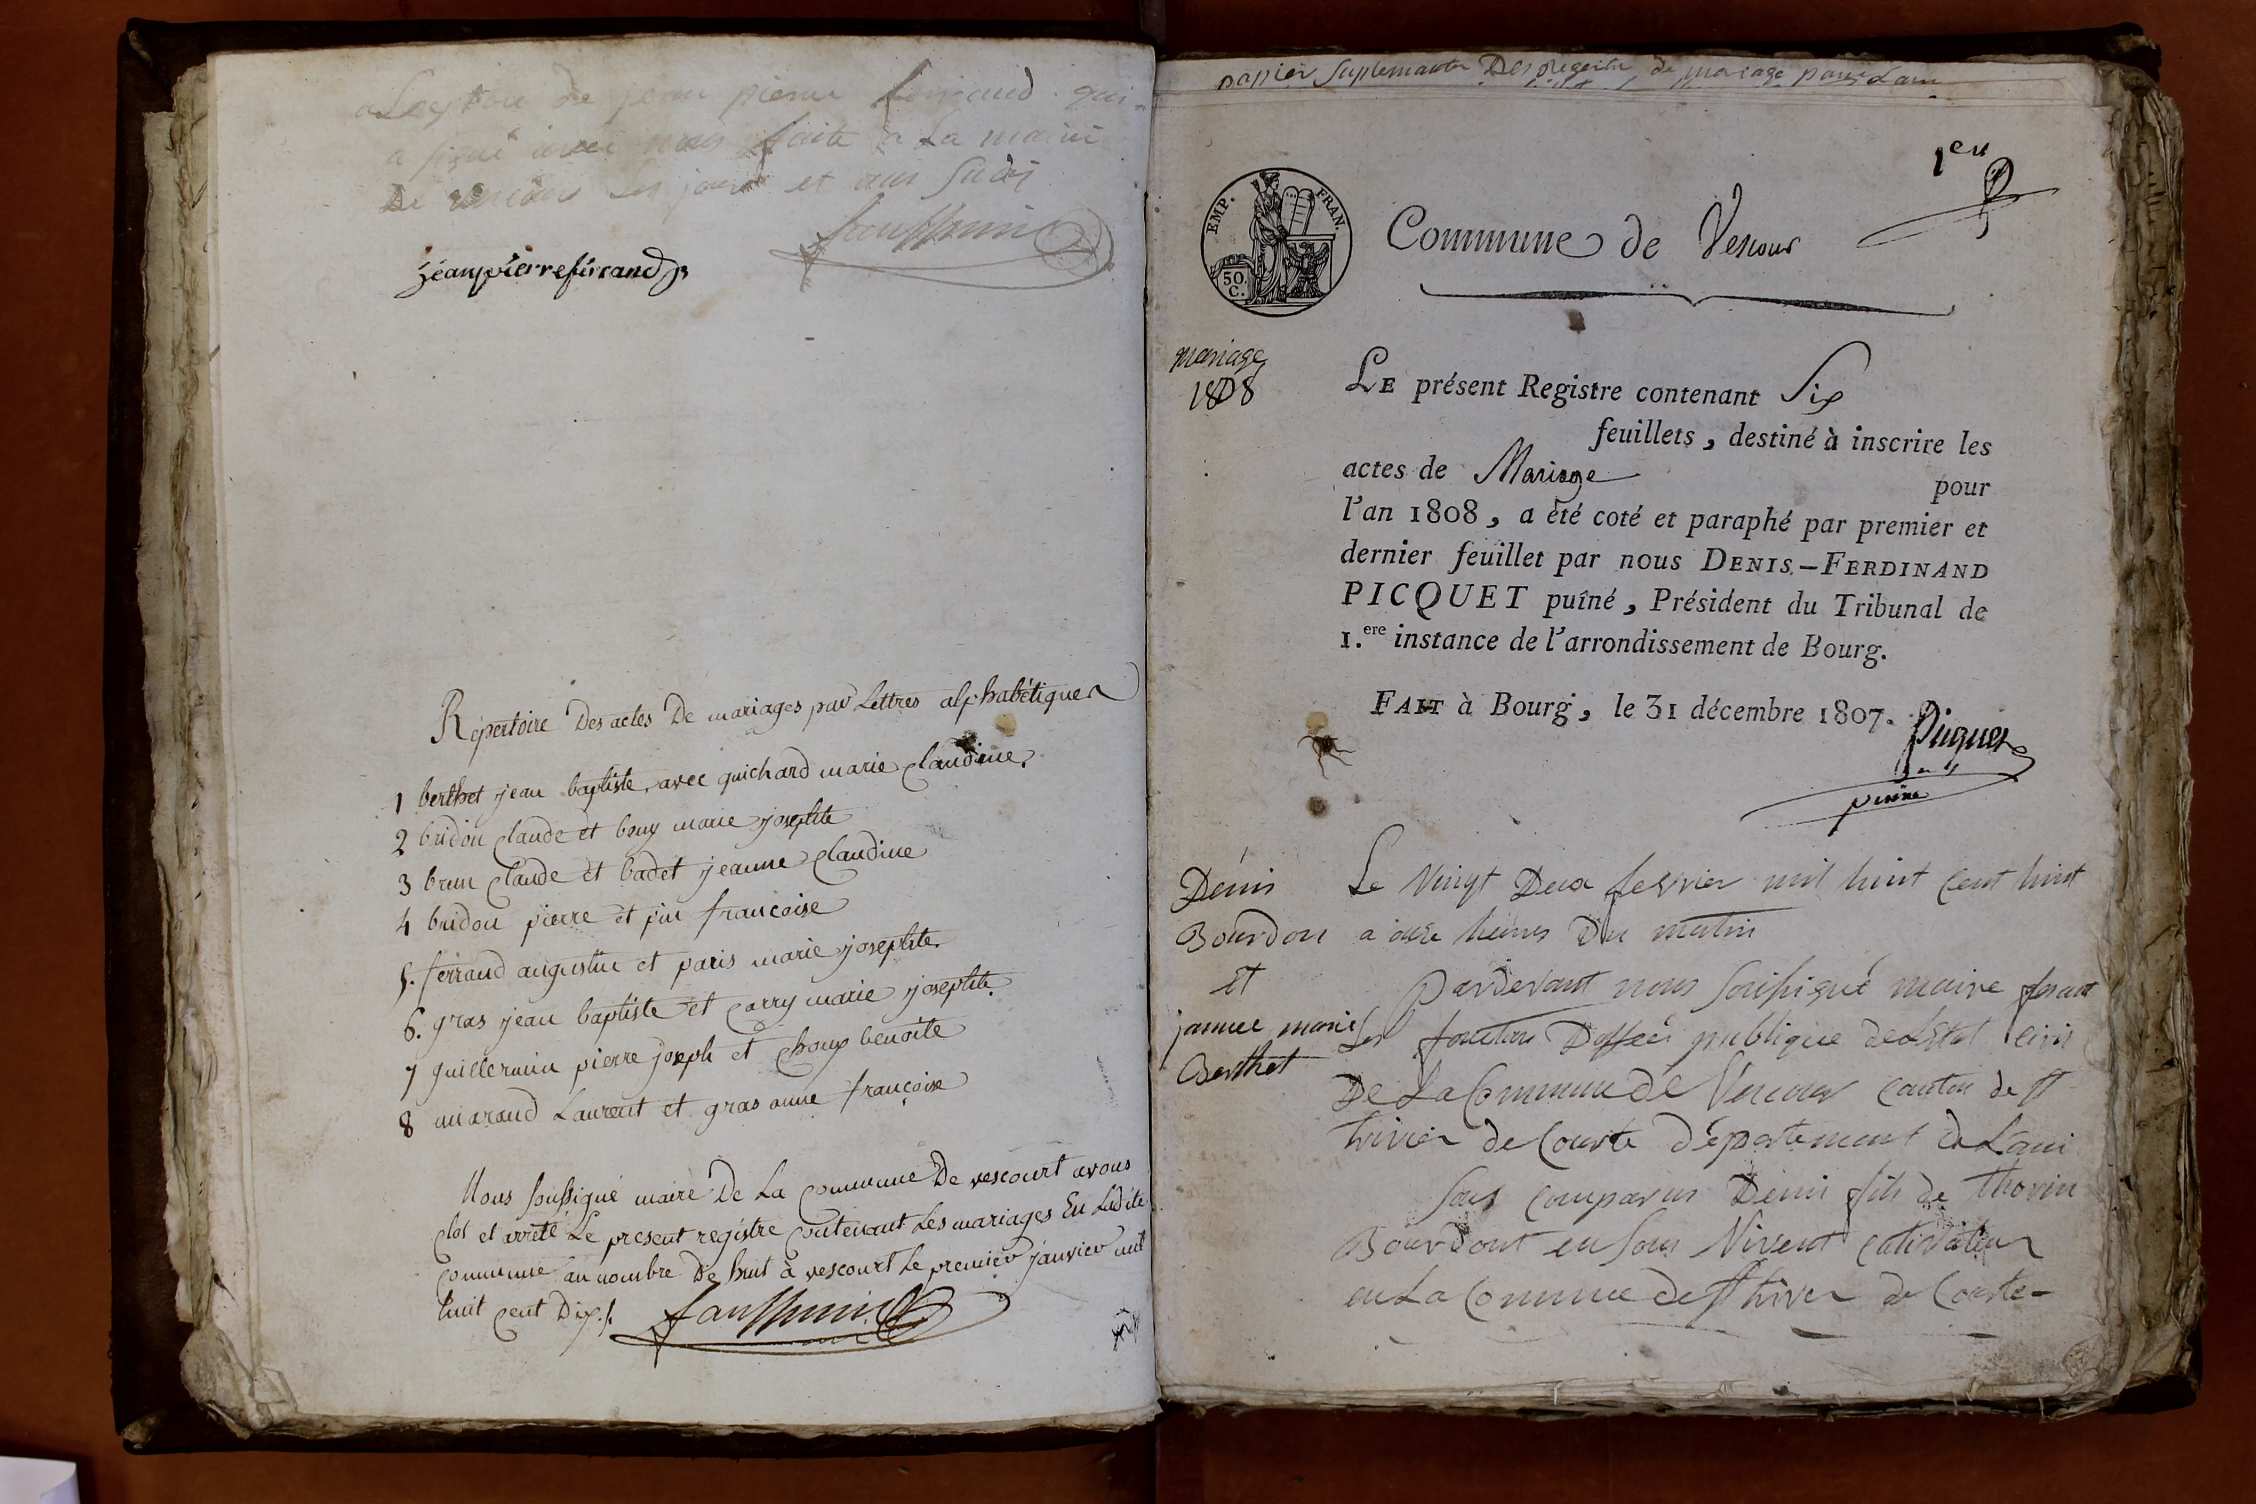 de jean pierre ferraud qui
a signé avec nous faite a La mairie
De les jours et ans susdis
jéanpierreférraud
Répertoire Des actes De mariages par Lettres alphabétiques
1 berthet jean baptiste, avec guichard marie claudine,
2 bridon claude et bouy marie josephte
3 brun claude et badet jeanne claudine
4 bridon pierre et pin francoise
5. ferraud augustin et paris marie josephte.
6. gras jean baptiste et carry marie josephte.
7 guillermin pierre joseph et choux benoite
8 maraud Laurent et gras anne françoise
Nous soussigné maire De La commune De vescourt avons
clos et arrêté Le present registre contenant Les mariages En Ladite
commune au nombre De huit à vescourt Le premier janvier mil
huit cent Dix./.
papier suplemanter Des Registre de mariage pour Lan
1er
EMP. FRAN.
50. C.
Commune de Vescour
mariage
1808
LE présent Registre contenant Six
feuillets, destiné à inscrire les
actes de Mariage pour
l'an 1808, a été coté et paraphé par premier et
dernier feuillet par nous DENIS-FERDINAND
PICQUET puîné, Président du Tribunal de
1.ere instance de l'arrondissement de Bourg.
FAIT à Bourg, le 31 décembre 1807.
Picquet
puiné
Dénis
Bourdon
et
jannee marie
Berthet
Le Vingt Deux fevrier mil huit Cent huit
a heures Du matin
Pardevant nous Soussigné maire fesant
Les publique de Létat civil
De La Commune de Vescour canton de st
trivier de Courte Département de Lain
Sons comparus Denis fils de
Bourdont en Sons Vivent cultivateur
en La Commune de st triver de Courte-